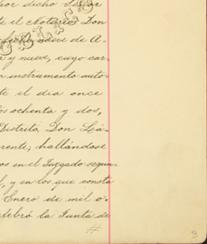 por dicho Señor
te el Notario Don
nueve de A-
y nueve, cuyo car
instrumento auto-
te el dia once
os ochenta y dos,
Distrito, Don Lea-
rente, hallándose
os en el Juzgado segun-
, y en los que consta
Enero de mil o-
lebró la Junta de